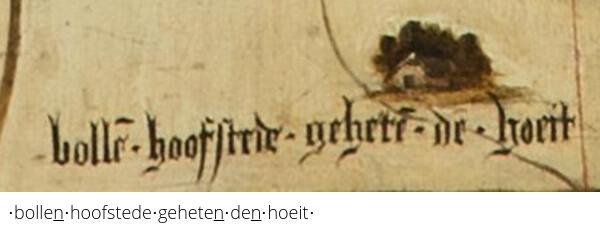 bollē · hoofstede · gehetē · de · hoeit
·bollen·hoofstede·geheten·den·hoeit·